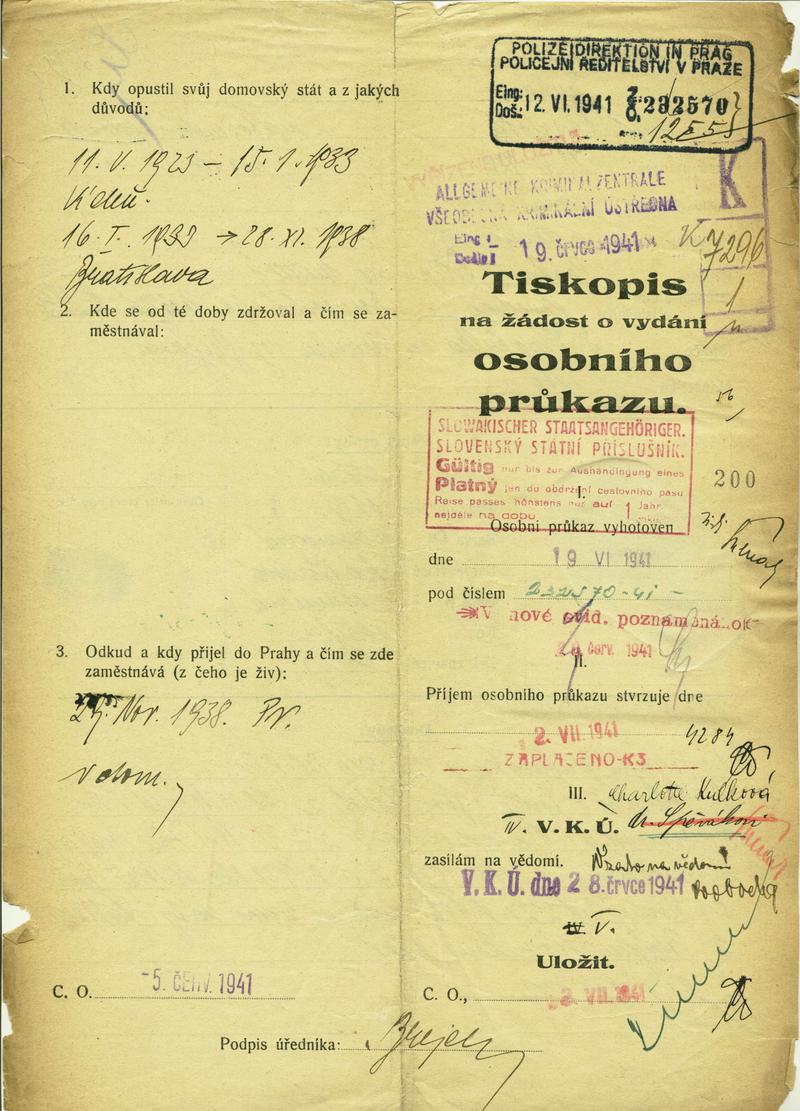 1. Kdy opustil svůj domovský stát a z jakých
důvodů;
11. V. 1923 – 15. 1. 1933
16. I. 1933 → 28. XI. 1938
Bratislava
2. Kde se od té doby zdržoval a čím se za-
městnával:
3. Odkud a kdy přijel do Prahy a čím se zde
zaměstnává (z čeho je živ):
29. Nov. 1938. Pr.
v dom.
C. O. -5. ČERV. 1941
Podpis úředníka:
POLIZEIDIREKTION IN PRAG
POLICEJNÍ ŘEDITELSTVÍ V PRAZE
Eing.: Doš.: 12. VI. 1941 232570
ALLGEMEINE KRIMINALZENTRALE
VŠEOBECNÁ KRIMINÁLNÍ ÚSTŘEDNA
19. ČRVCE 1941
K
K 7296
1
Tiskopis
na žádost o vydání
osobního
průkazu.
SLOWAKISCHER STAATSANGEHÖRIGER.
SLOVENSKÝ STÁTNÍ PŘÍSLUŠNÍK.
Gültig nur bis zur Aushändigung eines
Platný jen do obdržení cestovního pasu
Reise passes hönstens nur auf 1 Jahr.
nejdéle na dobu 1 roku.
200
I.
Osobní průkaz vyhotoven
dne 19 VI 1941
pod číslem 232570-41 -
V nové evid. poznamenáno:
červ. 1941
II.
Příjem osobního průkazu stvrzuje dne
2. VII. 1941 4284
ZAPLACENO-K3
III. Charlotte Kulková
IV. V. K. Ú.
zasílám na vědomí. Vzato na vědomí
V. K. Ú. dne 28. črvce 1941
IV V.
Uložit.
C. O., 3. VII. 1941